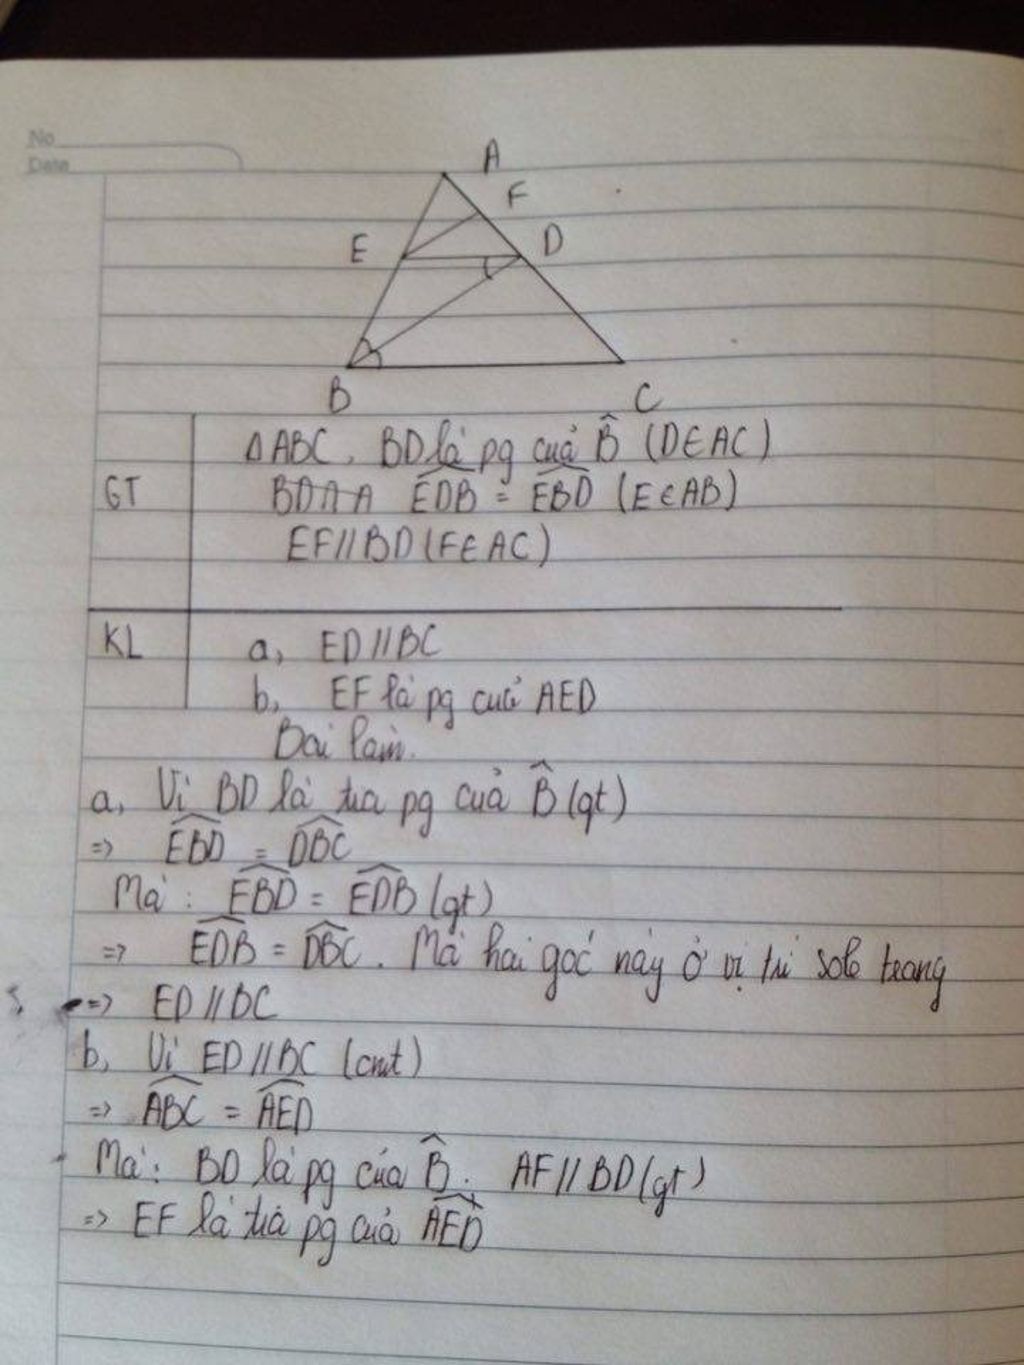 No
Date
A
F
E
D
B
C
GT
ΔABC, BD là pg cuả B̂ (D∈AC)
EDB = EBD (E∈AB)
EF//BD (F∈AC)
KL
a, ED//BC
b, EF là pg cuả AED
Bài làm.
a, Vì BD là tia pg cuả B̂ (gt)
=> EBD = DBC
Mà: EBD = EDB (gt)
=> EDB = DBC. Mà hai góc này ở vị trí sole trong
=> ED//BC
b, Vì ED//BC (cmt)
=> ABC = AED
Mà: BD là pg của B̂. AF//BD (gt)
=> EF là tia pg cuả AED